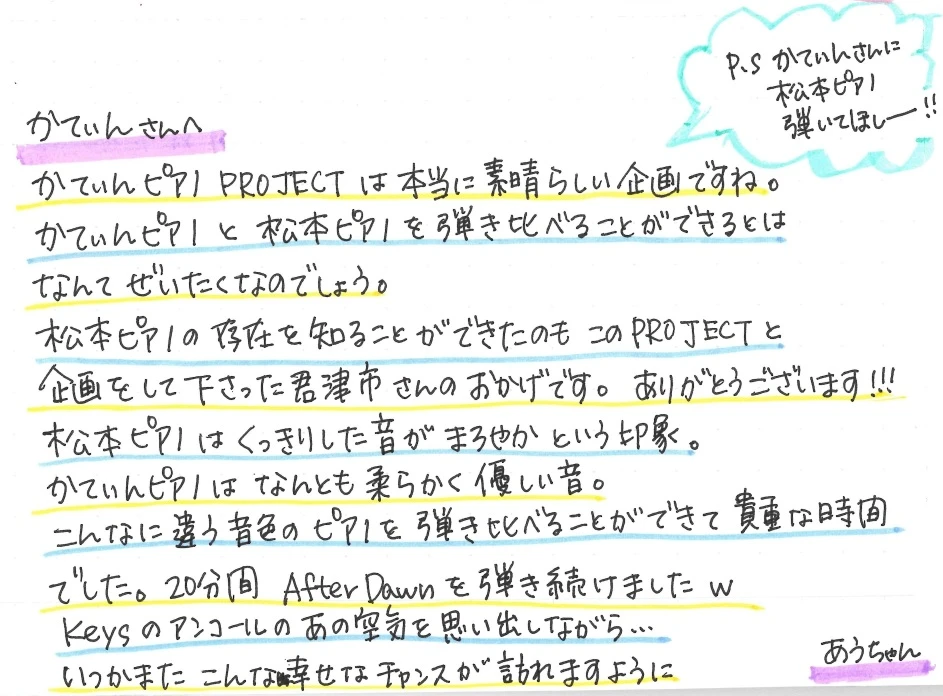 P.S かてぃんさんに
松本ピアノ
弾いてほしー!!
かてぃんさんへ
かてぃんピアノ PROJECTは本当に素晴らしい企画ですね。
かてぃんピアノと松本ピアノを弾き比べることができるとは
なんてぜいたくなのでしょう。
松本ピアノの存在を知ることができたのもこのPROJECTと
企画をして下さった君津市さんのおかげです。ありがとうございます!!!
松本ピアノはくっきりした音がまろやかという印象。
かてぃんピアノはなんとも柔らかく優しい音。
こんなに違う音色のピアノを弾き比べることができて貴重な時間
でした。20分間 After Dawnを弾き続けましたw
Keysのアンコールのあの空気を思い出しながら...
いつかまたこんな幸せなチャンスが訪れますように
あうちゃん